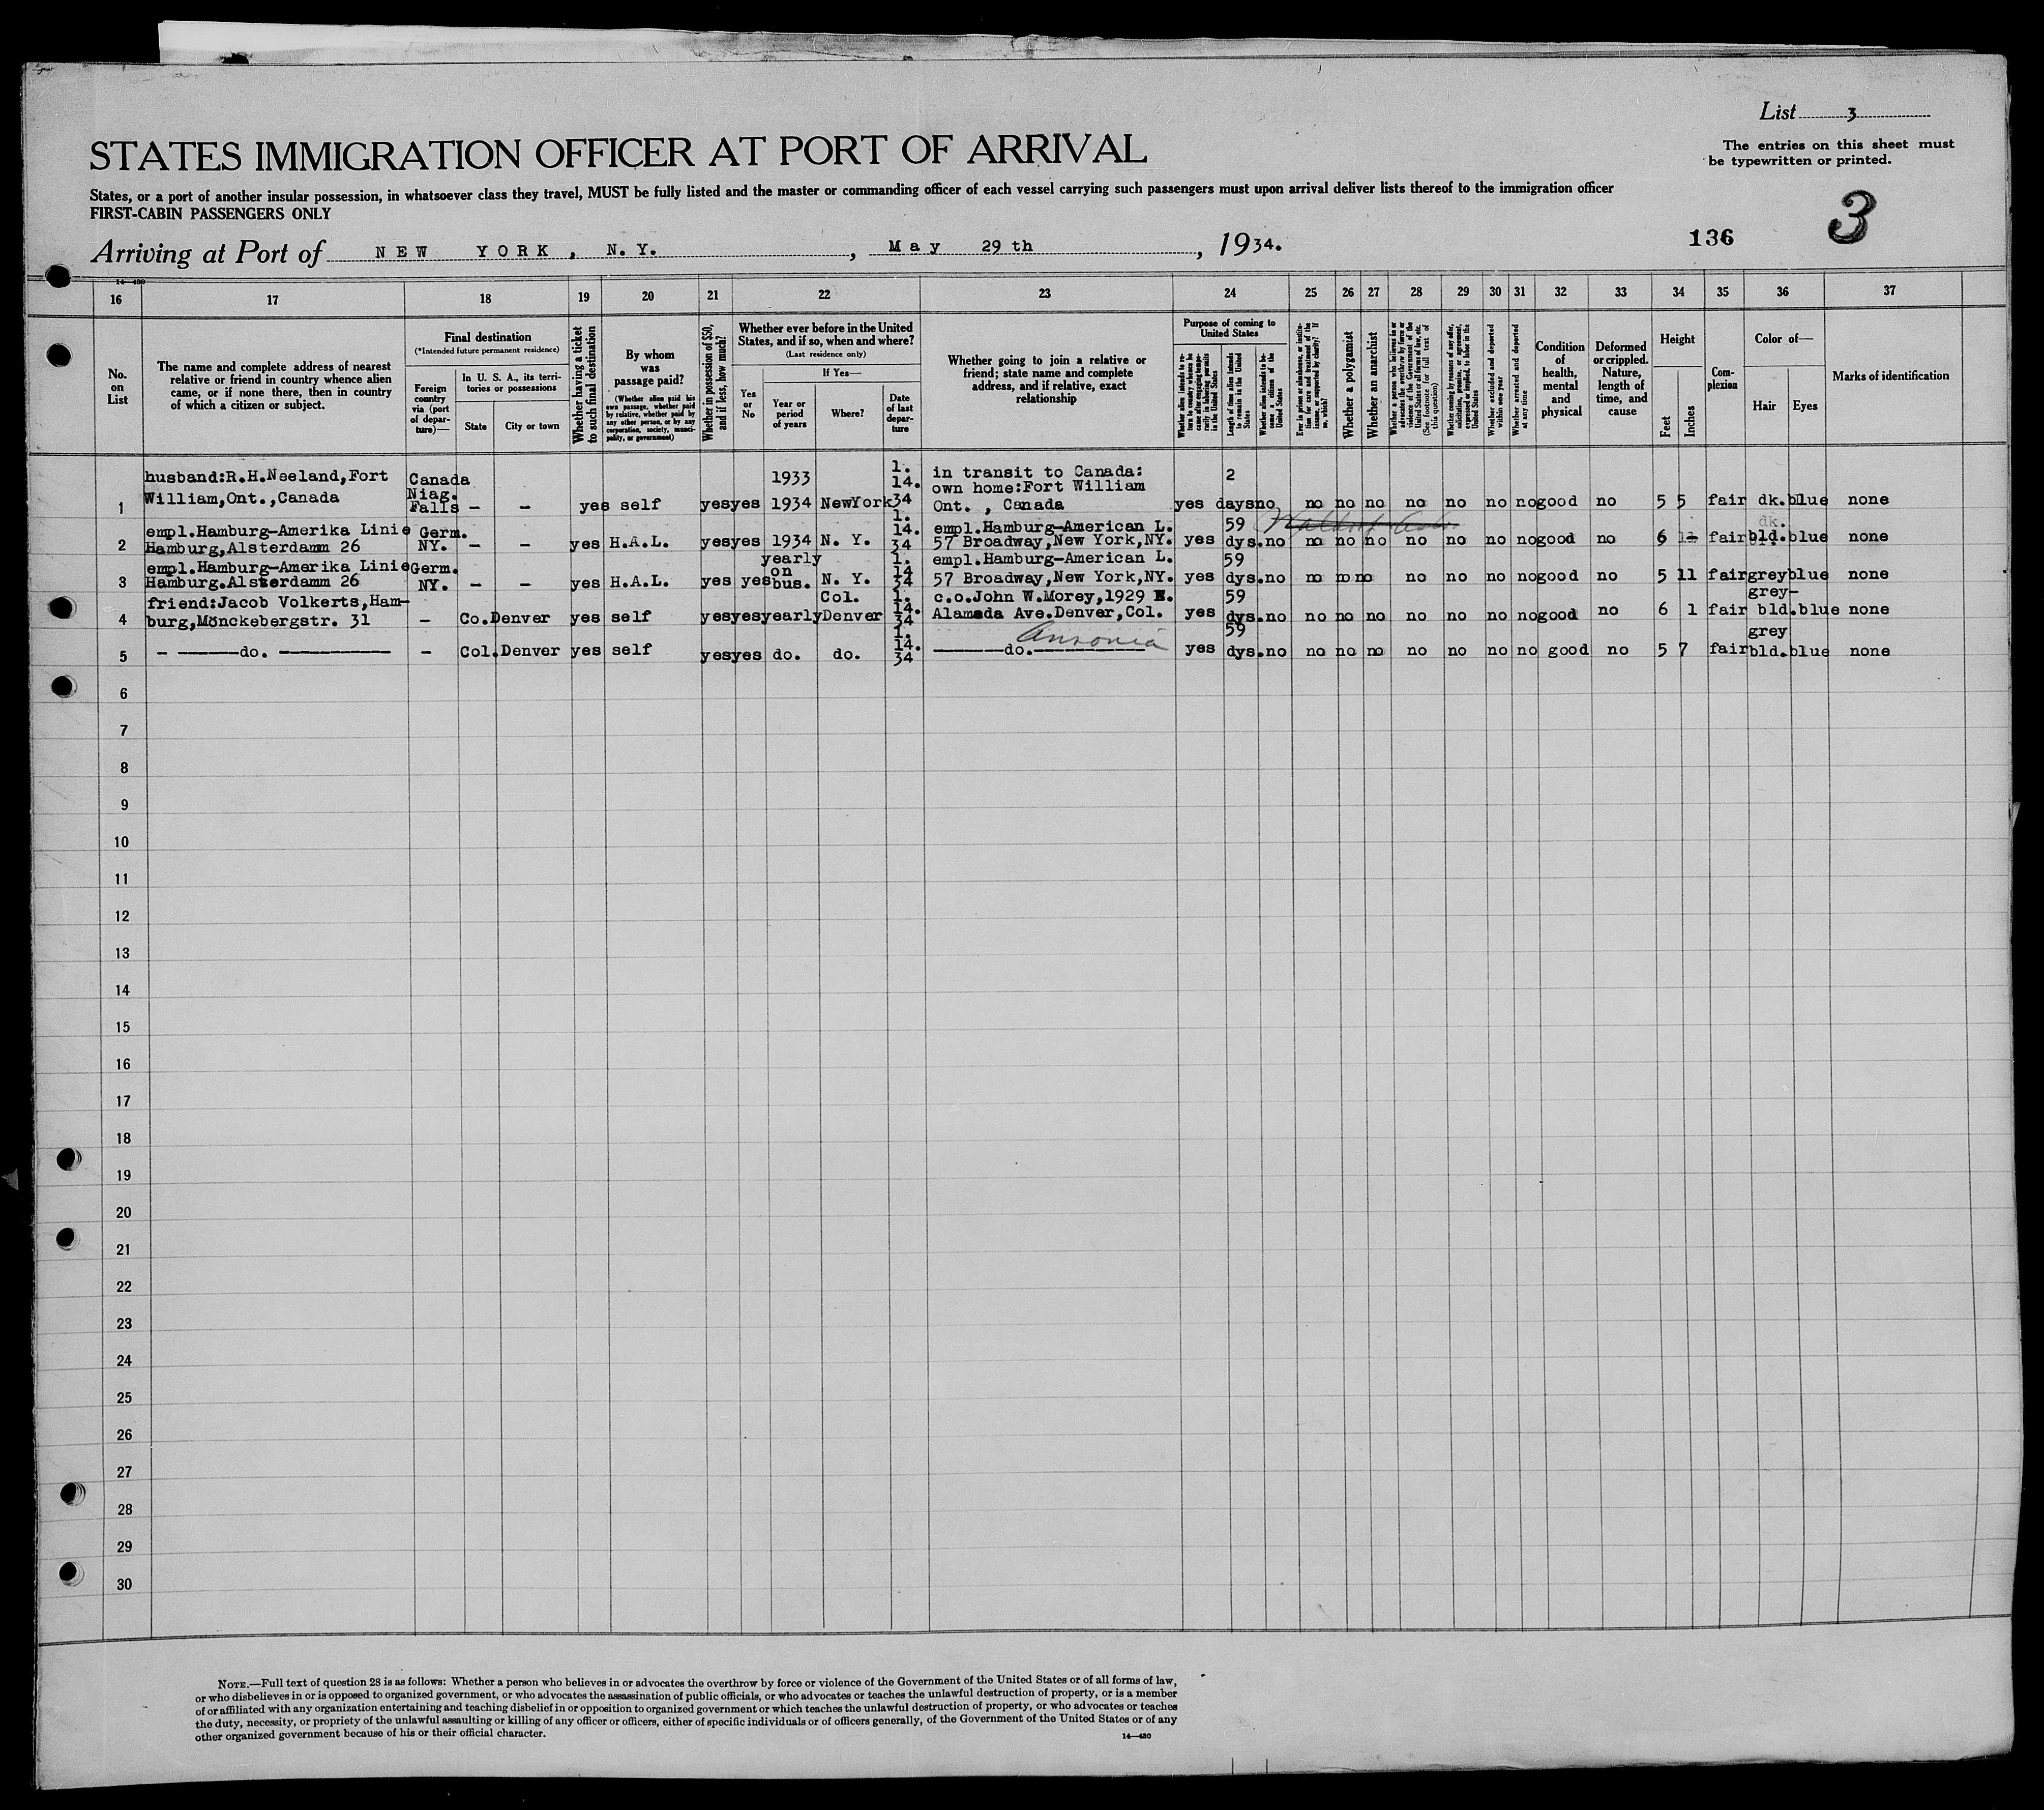 List 3
The entries on this sheet must
be typewritten or printed.
STATES IMMIGRATION OFFICER AT PORT OF ARRIVAL
States, or a port of another insular possession, in whatsoever class they travel, MUST be fully listed and the master or commanding officer of each vessel carrying such passengers must upon arrival deliver lists thereof to the immigration officer
FIRST-CABIN PASSENGERS ONLY
136
3
Arriving at Port of NEW YORK, N.Y., May 29th, 1934.
16 17 18 19 20 21 22 23 24 25 26 27 28 29 30 31 32 33 34 35 36 37
No. on List
The name and complete address of nearest
relative or friend in country whence alien
came, or if none there, then in country
of which a citizen or subject.
Final destination
(*Intended future permanent residence)
Foreign country via (port of departure)—
In U. S. A., its territories or possessions
State
City or town
Whether having a ticket to such final destination
By whom was passage paid?
(Whether alien paid his own passage, whether paid by relative, whether paid by any other person, or by any corporation, society, municipality, or government)
Whether in possession of $50, and if less, how much?
Whether ever before in the United States, and if so, when and where?
(Last residence only)
Yes or No
If Yes—
Year or period of years
Where?
Date of last departure
Whether going to join a relative or
friend; state name and complete
address, and if relative, exact
relationship
Purpose of coming to United States
Length of time alien intends to remain in the United States
Whether alien intends to become a citizen of the United States
Whether a polygamist
Whether an anarchist
Whether excluded and deported within one year
Whether arrested and deported at any time
Condition of health, mental and physical
Deformed or crippled. Nature, length of time, and cause
Height
Feet
Inches
Complexion
Color of—
Hair
Eyes
Marks of identification
1 husband:R.H.Neeland,Fort William,Ont.,Canada Canada Niag. Falls - - yes self yes yes 1933 1934 NewYork 1. 14. 34 in transit to Canada: own home:Fort William Ont. , Canada yes 2 days no no no no no no no no good no 5 5 fair dk. blue none
2 empl.Hamburg-Amerika Linie Hamburg,Alsterdamm 26 Germ. NY. - - yes H.A.L. yes yes 1934 N. Y. 1. 14. 34 empl.Hamburg-American L. 57 Broadway,New York,NY. yes 59 dys. no no no no no no no no good no 6 fair dk. bld. blue none
3 empl.Hamburg-Amerika Linie Hamburg.Alsterdamm 26 Germ. NY. - - yes H.A.L. yes yes yearly on bus. N. Y. 1. 14 34 empl.Hamburg-American L. 57 Broadway,New York,NY. yes 59 dys. no no no no no no no no good no 5 11 fair grey blue none
4 friend:Jacob Volkerts,Hamburg,Mönckebergstr. 31 - Co. Denver yes self yes yes yearly Col. Denver 1. 14. 34 c.o.John W.Morey,1929 E. Alameda Ave.Denver,Col. yes 59 dys. no no no no no no no no good no 6 1 fair grey-bld. blue none
5 - ———do. ——— - Col. Denver yes self yes yes do. do. 1. 14. 34 ———do.——— Ansonia yes 59 dys. no no no no no no no no good no 5 7 fair grey bld. blue none
6
7
8
9
10
11
12
13
14
15
16
17
18
19
20
21
22
23
24
25
26
27
28
29
30
NOTE.—Full text of question 28 is as follows: Whether a person who believes in or advocates the overthrow by force or violence of the Government of the United States or of all forms of law,
or who disbelieves in or is opposed to organized government, or who advocates the assassination of public officials, or who advocates or teaches the unlawful destruction of property, or is a member
of or affiliated with any organization entertaining and teaching disbelief in or opposition to organized government or which teaches the unlawful destruction of property, or who advocates or teaches
the duty, necessity, or propriety of the unlawful assaulting or killing of any officer or officers, either of specific individuals or of officers generally, of the Government of the United States or of any
other organized government because of his or their official character.
14—430